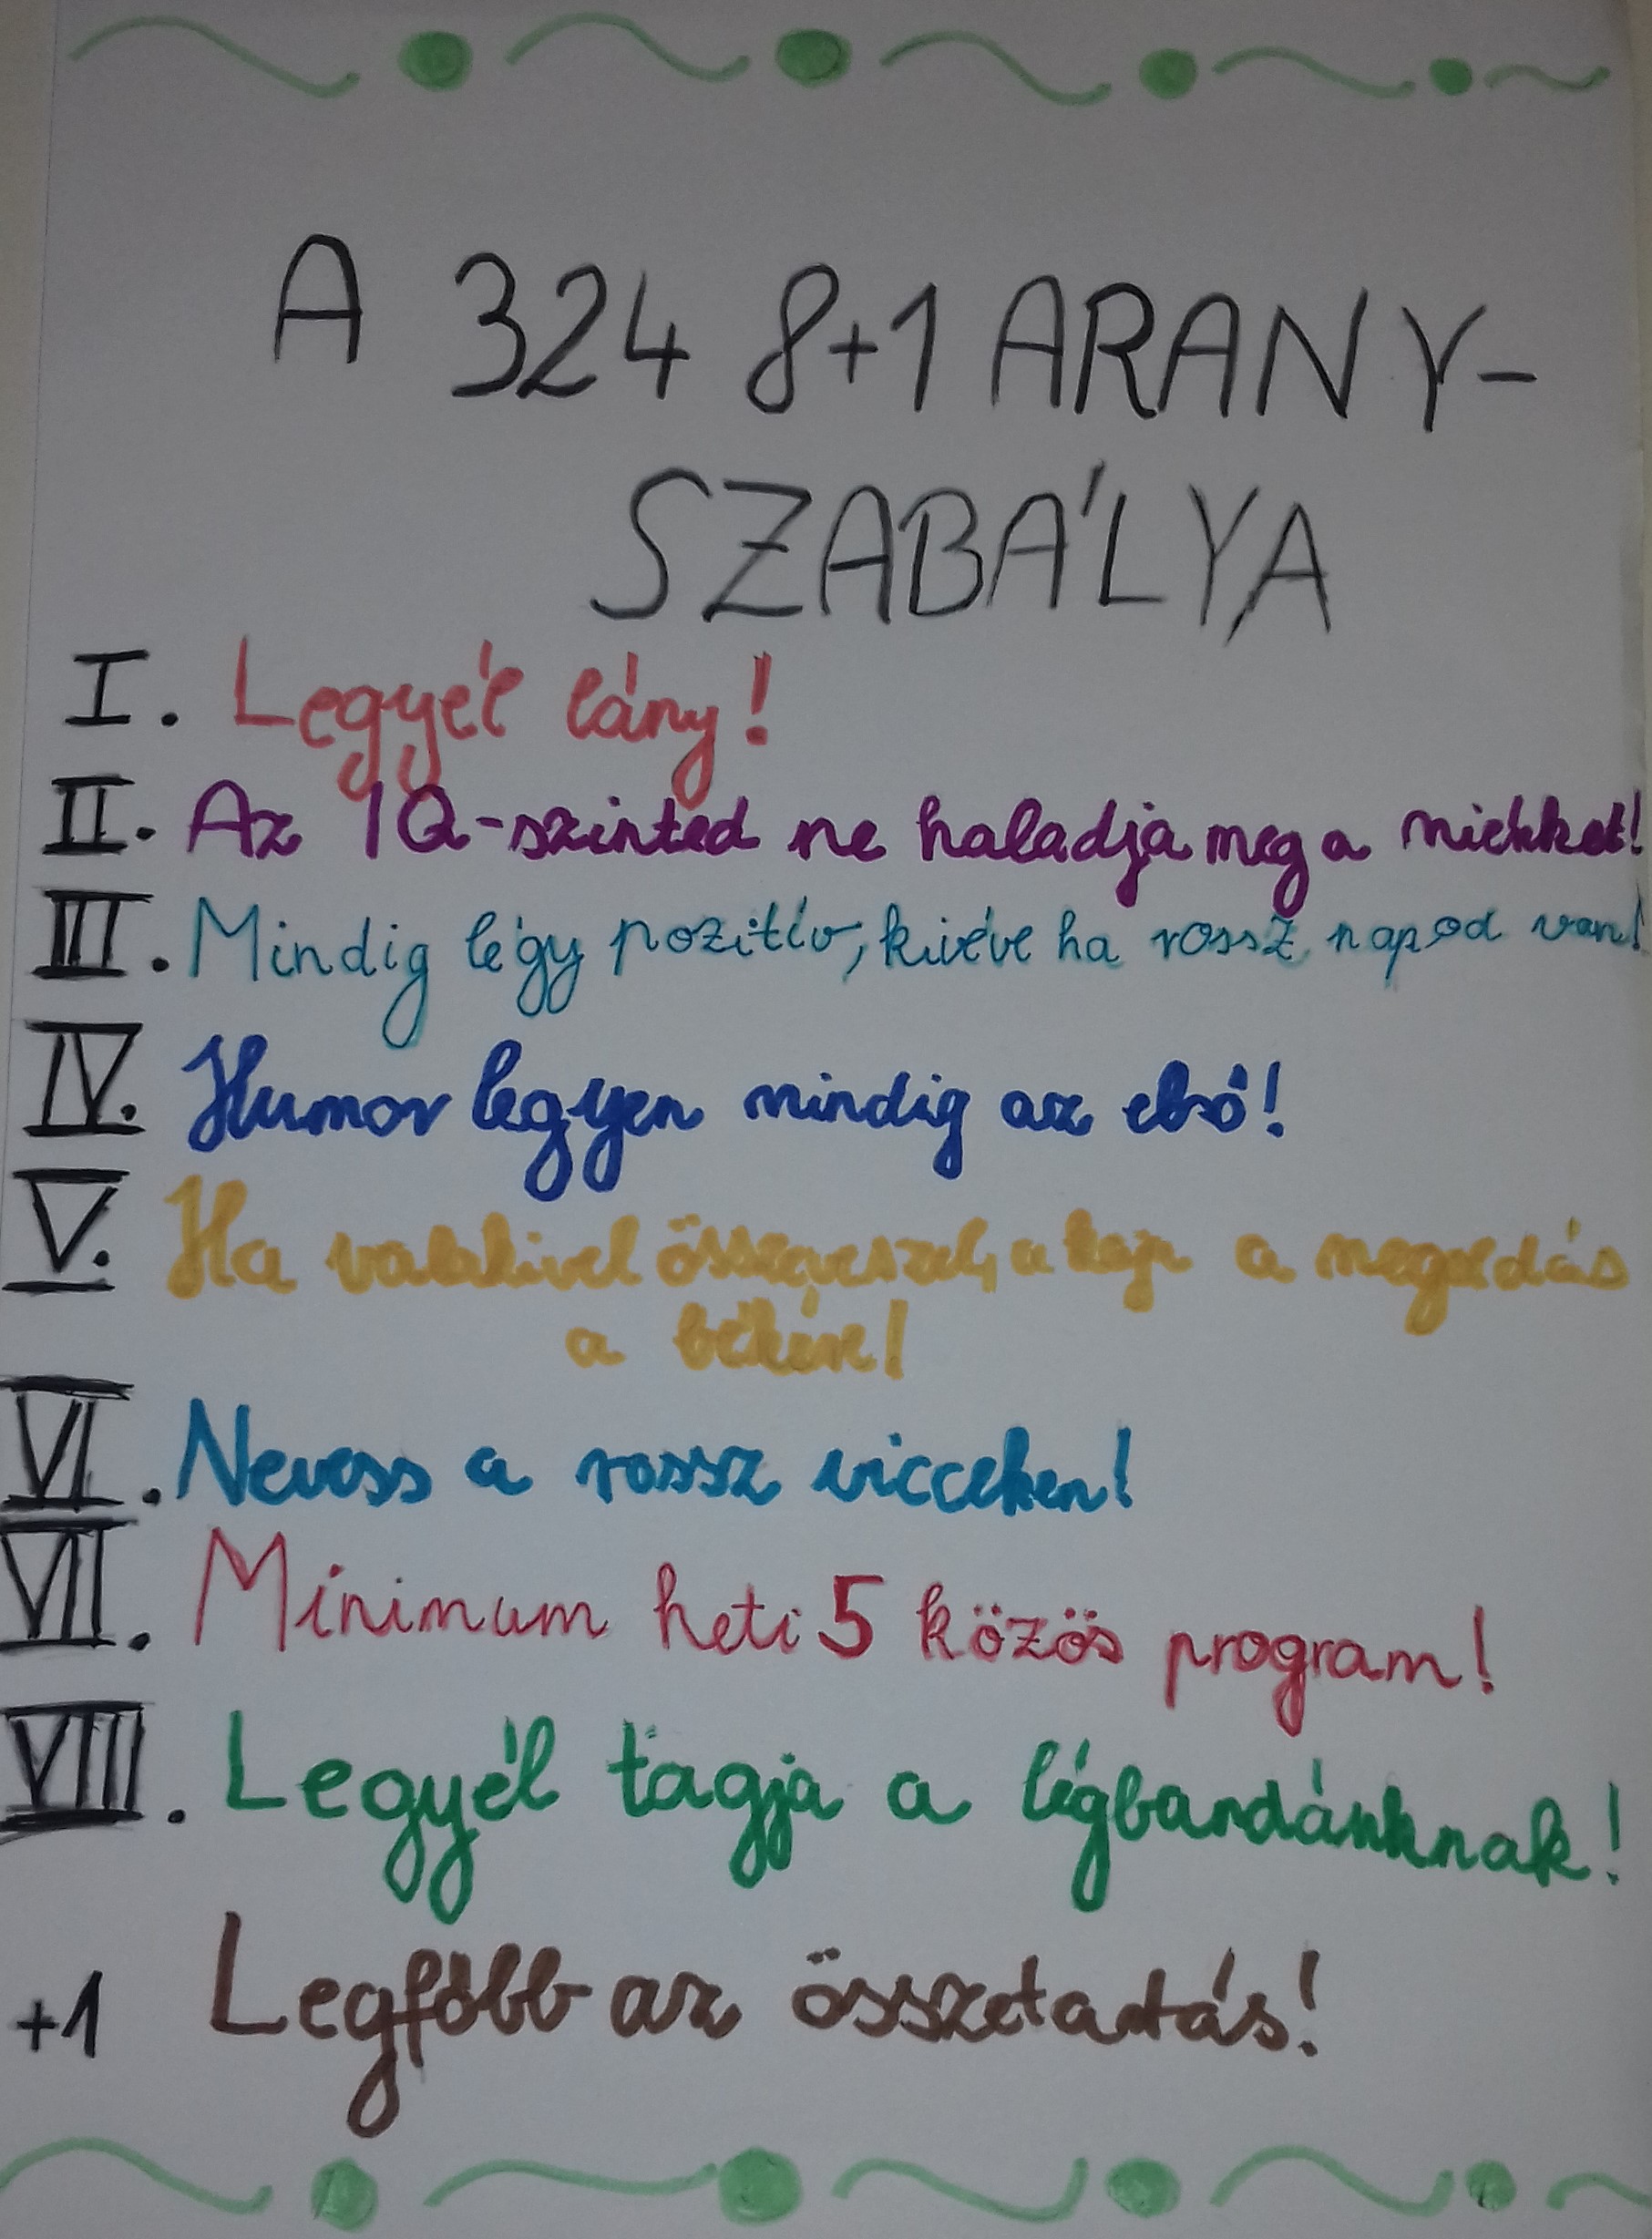 A 324 8+1 ARANY-
SZABÁLYA
I. Legyél lány!
II. Az IQ-szinted ne haladja meg a miénket!
III. Mindig légy pozitív, kivéve ha rossz napod van!
IV. Humor legyen mindig az első!
V. Ha valakivel összeveszel, a kaja a megoldás
a békére!
VI. Nevess a rossz vicceken!
VII. Minimum heti 5 közös program!
VIII. Legyél tagja a légbandánknak!
+1 Legfőbb az összetartás!